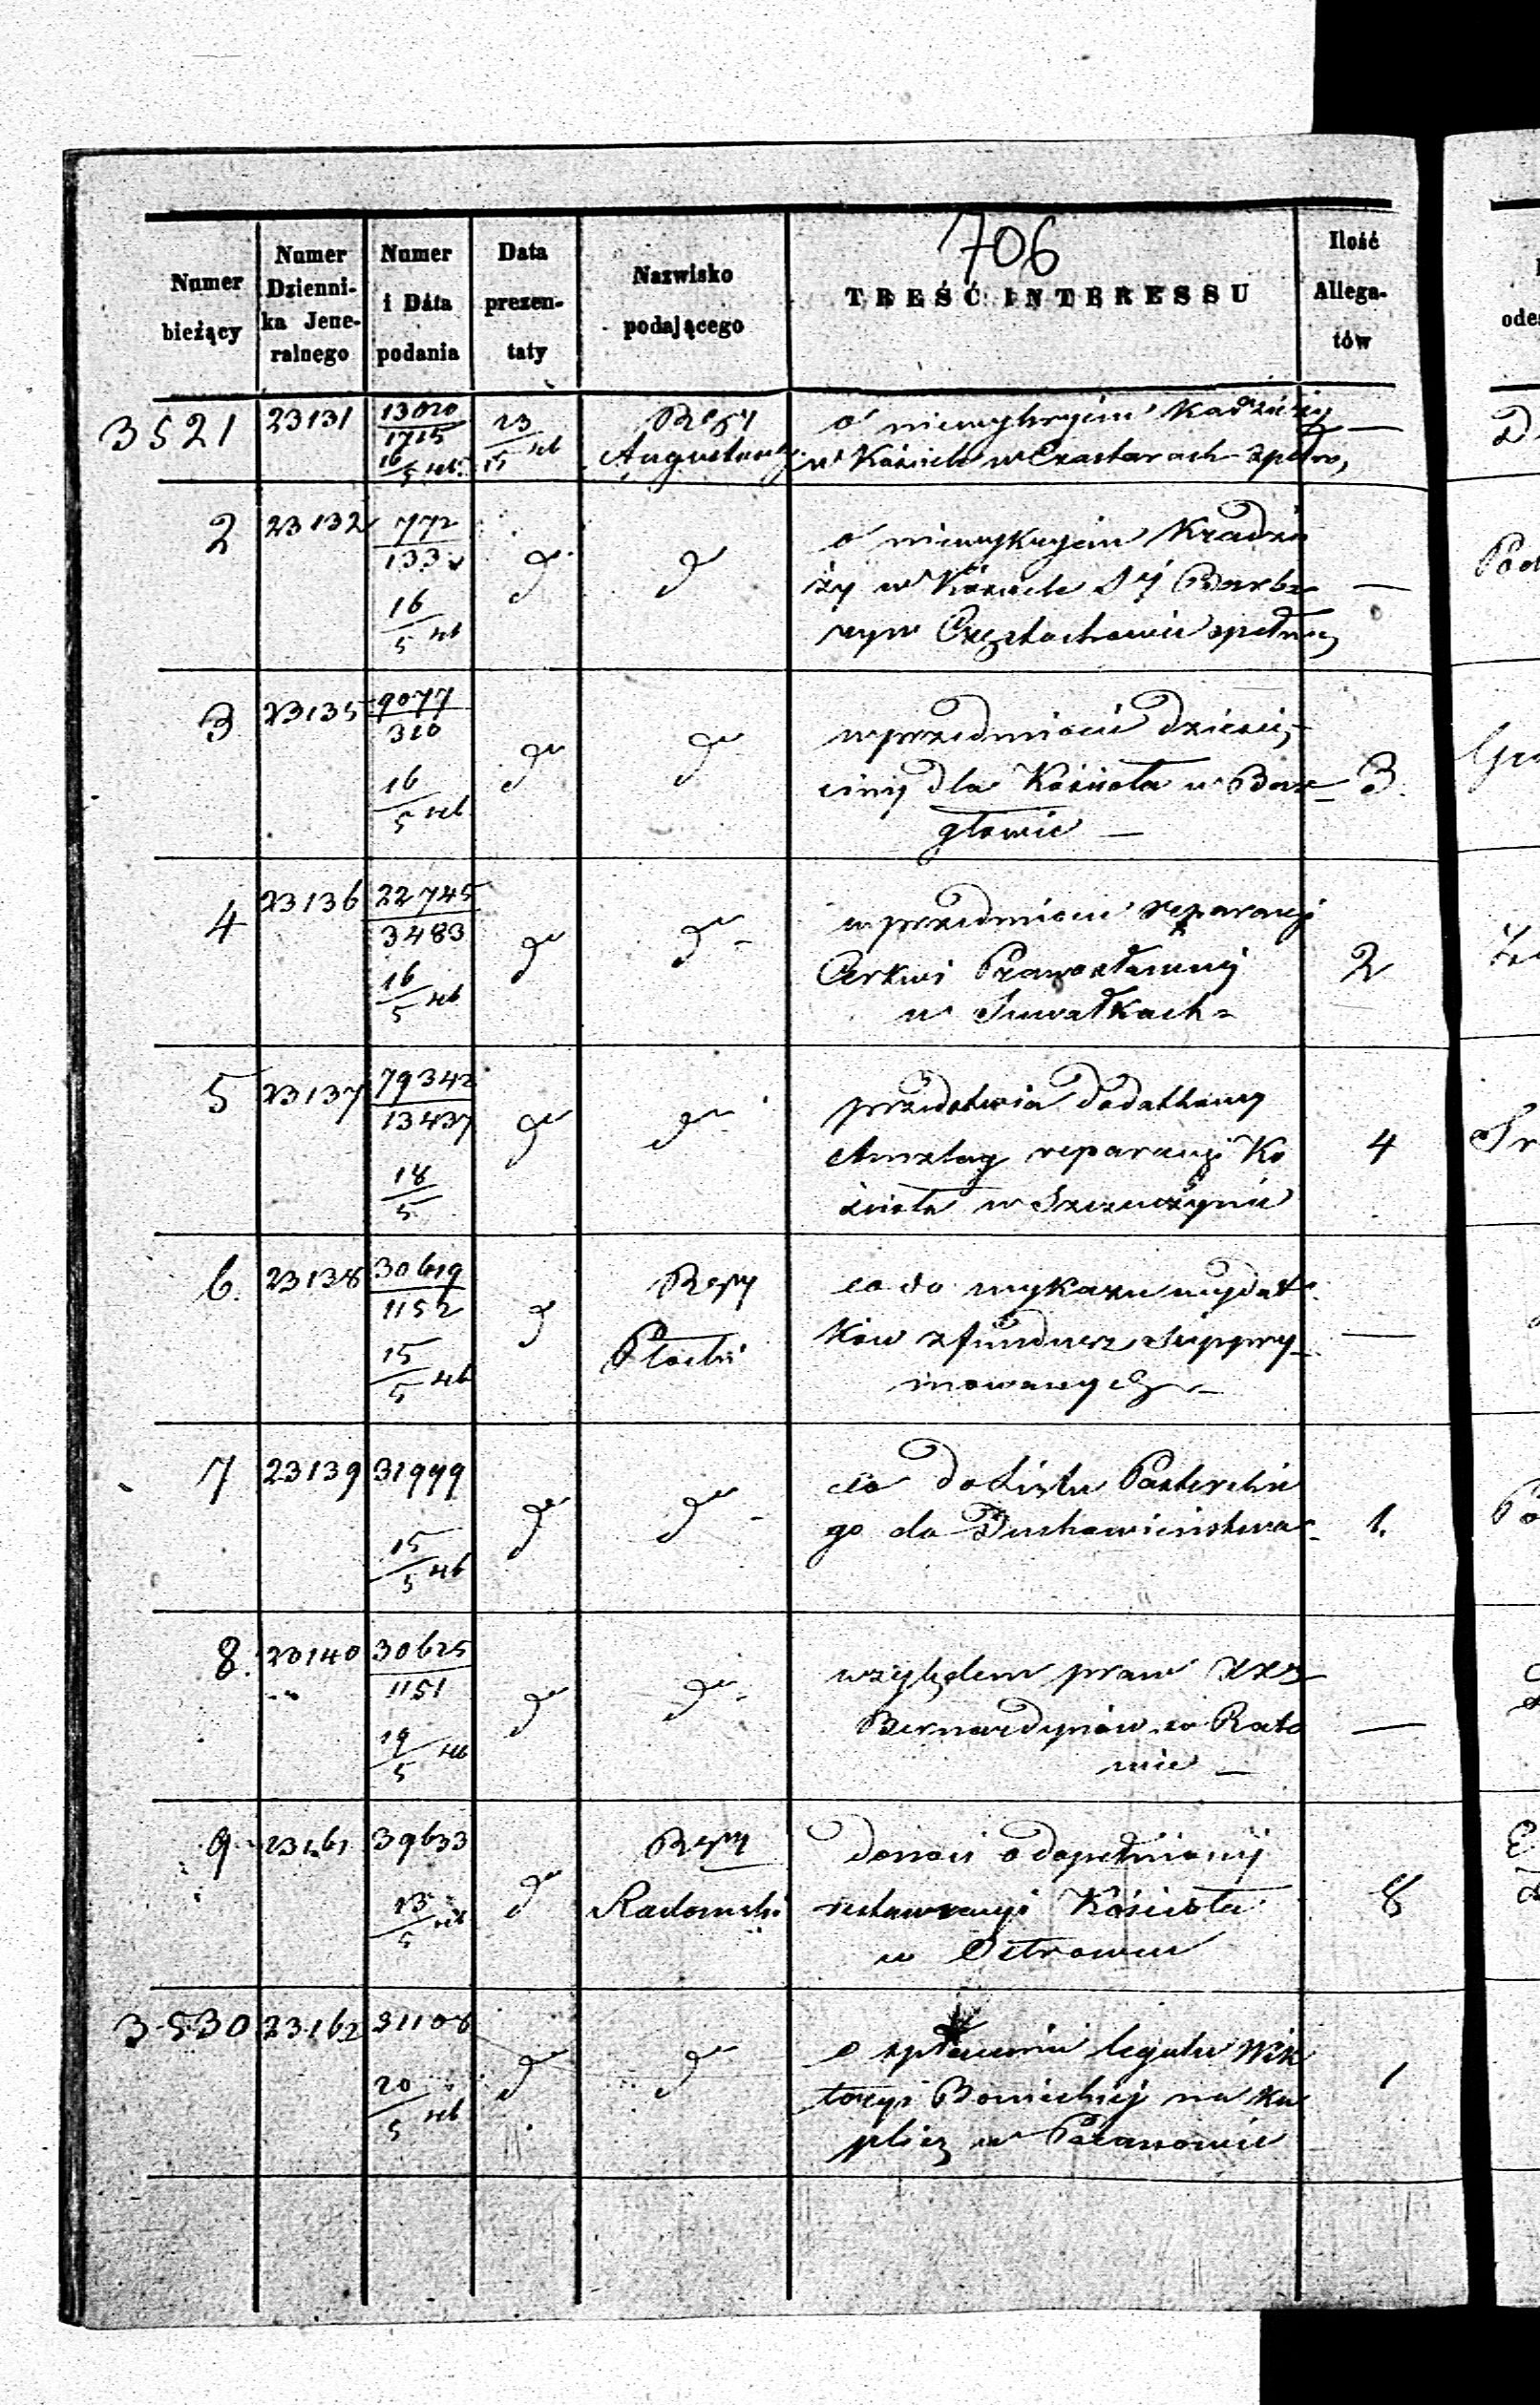 706
Numer bieżący
Numer Dzienni-ka Jene-ralnego
Numer i Data podania
Data prezen-taty
Nazwisko podającego
TREŚĆ INTERESSU
Ilość Allega-tów
3521 23131 13020/1715 16/5 23/15 Augustowski
o niewykryciu Kradzieży —
w Kościele w
2 23132 772/133 16/5 d d
o niewykryciu Kradzie
ży w Kościele Sej Barba —
ry w Częstochowie spełnio
3 23135 9077/310 16/5 do do
w przedmiocie dziesię
ciny dla Kościoła w Bar- 3.
głowie —
4 23136 22745/3483 16/5 do do
w przedmiocie reparacyi
Cerkwi Prawosławnej 2
w Suwałkach
5 23137 79342/13437 18/5 do do
przedstawia dodatkowy
Anszlag reparacyi Ko 4
ścioła w Szczuczynie
6. 23138 30619/1152 15/5 d Płocki
co do wykazu wydat
ków z funduszu Suppry —
mowanych —
7 23139 31979 15/5 do do
co do Listu Pasterskie
go do Duchowieństwa 1.
8. 23140 30625/1151 19/5 do do
względem praw XXz
Bernardynów w Rato —
wie —
9 23161 39633 13/5 do Radomski
donosi o dopełnionej
restauracyi Kościoła 8
w
3530 23162 31108 20/5 do do
o spłaceniu legatu Wik
toryi Bonieckiej na ka 1
plicę w